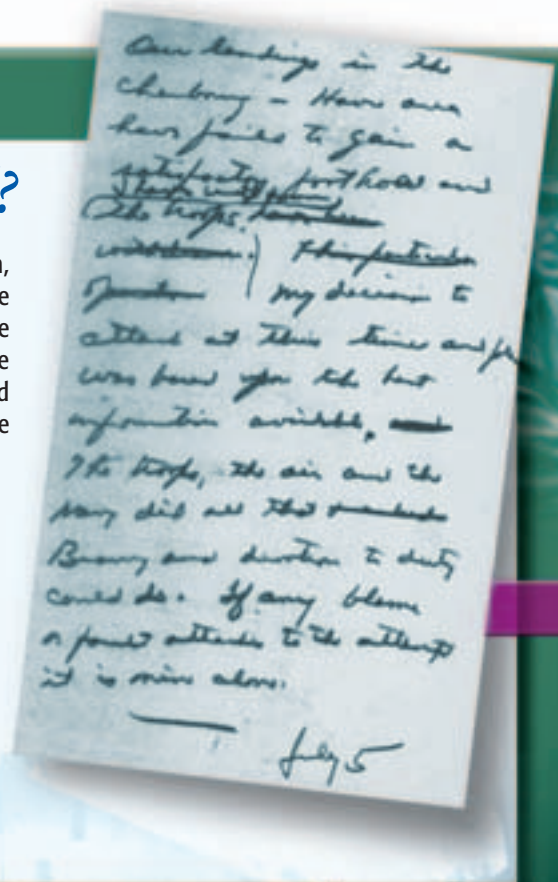 ?
,
e
e
e
d
e
Our landings in the
Cherbourg - Havre area
have failed to gain a
satisfactory foothold and
I have withdrawn
the troops.
This particular
operation my decision to
attack at this time and place
was based upon the best
information available,
The troops, the air and the
Navy did all that
Bravery and devotion to duty
could do. If any blame
or fault attaches to the attempt
it is mine alone.
July 5